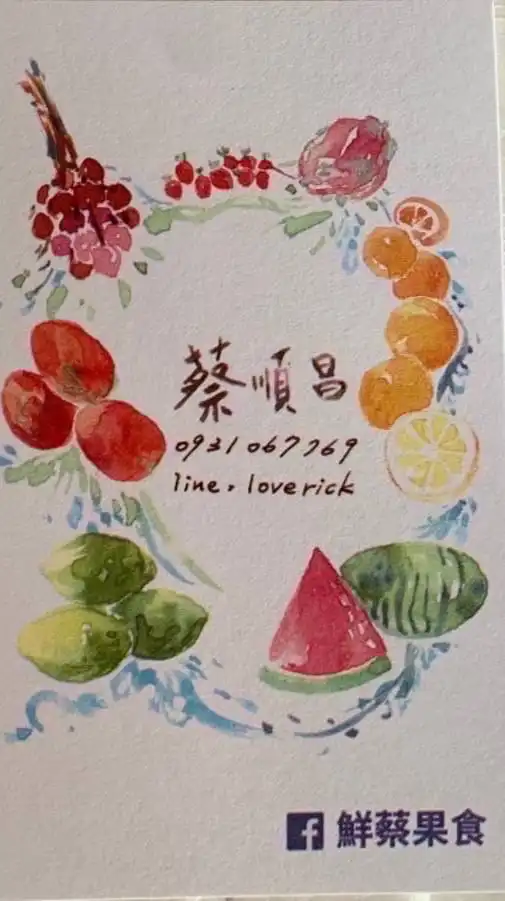 蔡順昌
0931067769
line. loverick
鮮蔡果食